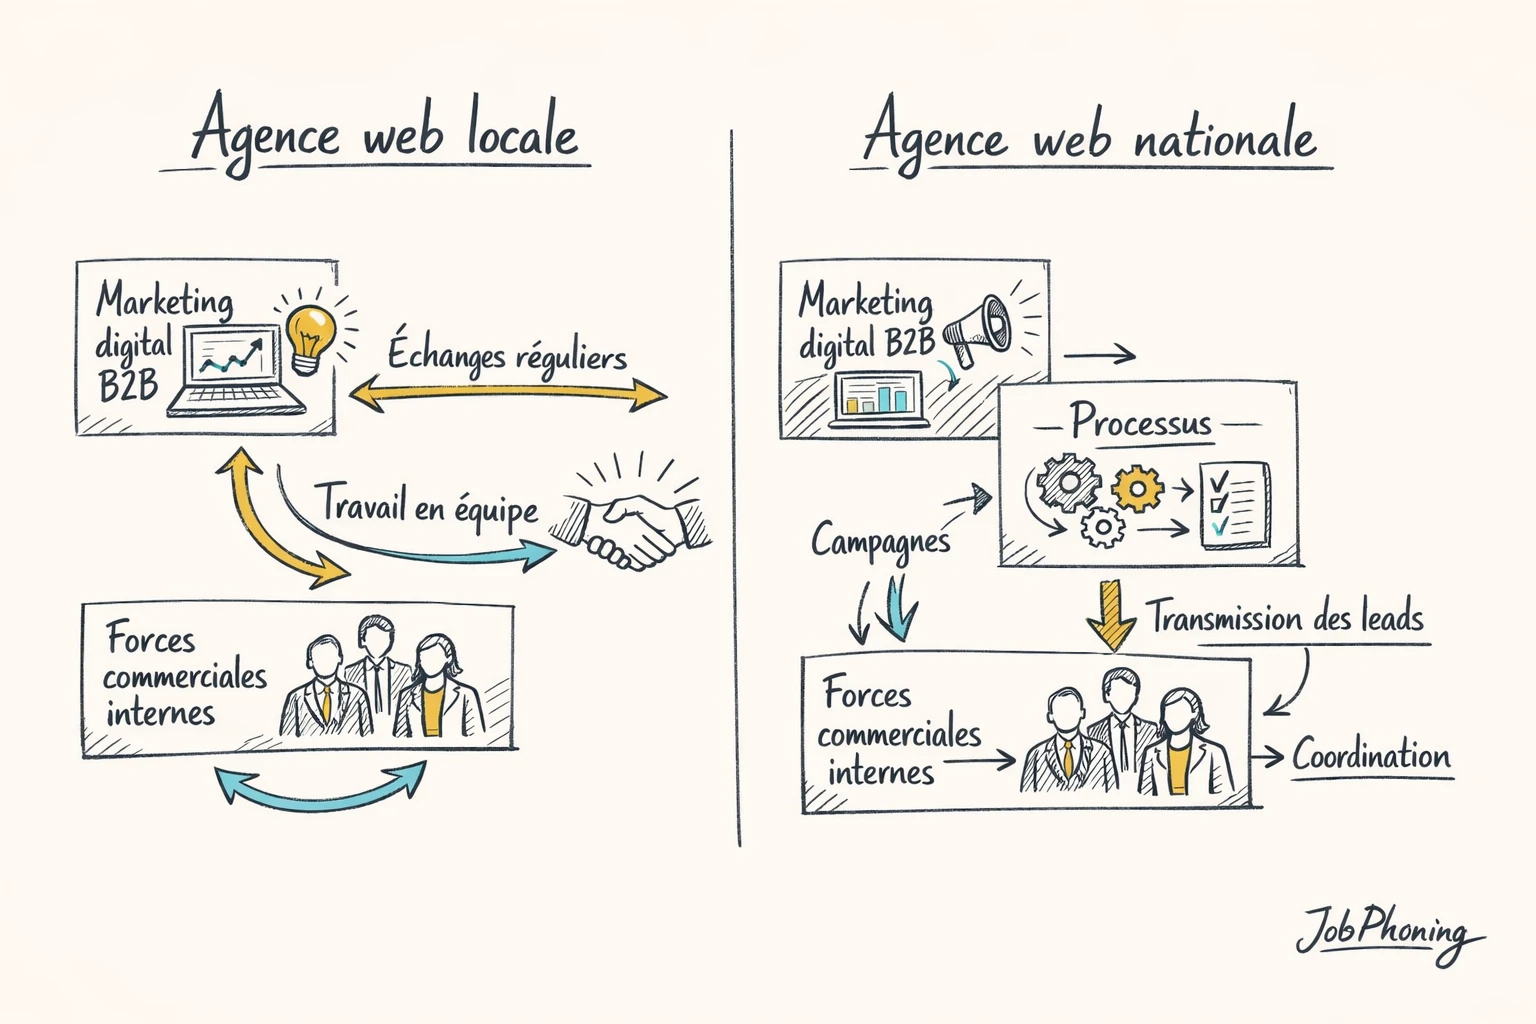 Agence web locale
Marketing
digital
B2B
Échanges réguliers
Travail en équipe
Forces
commerciales
internes
Agence web nationale
Marketing
digital B2B
Processus
Campagnes
Transmission des leads
Forces
commerciales
internes
Coordination
JobPhoning